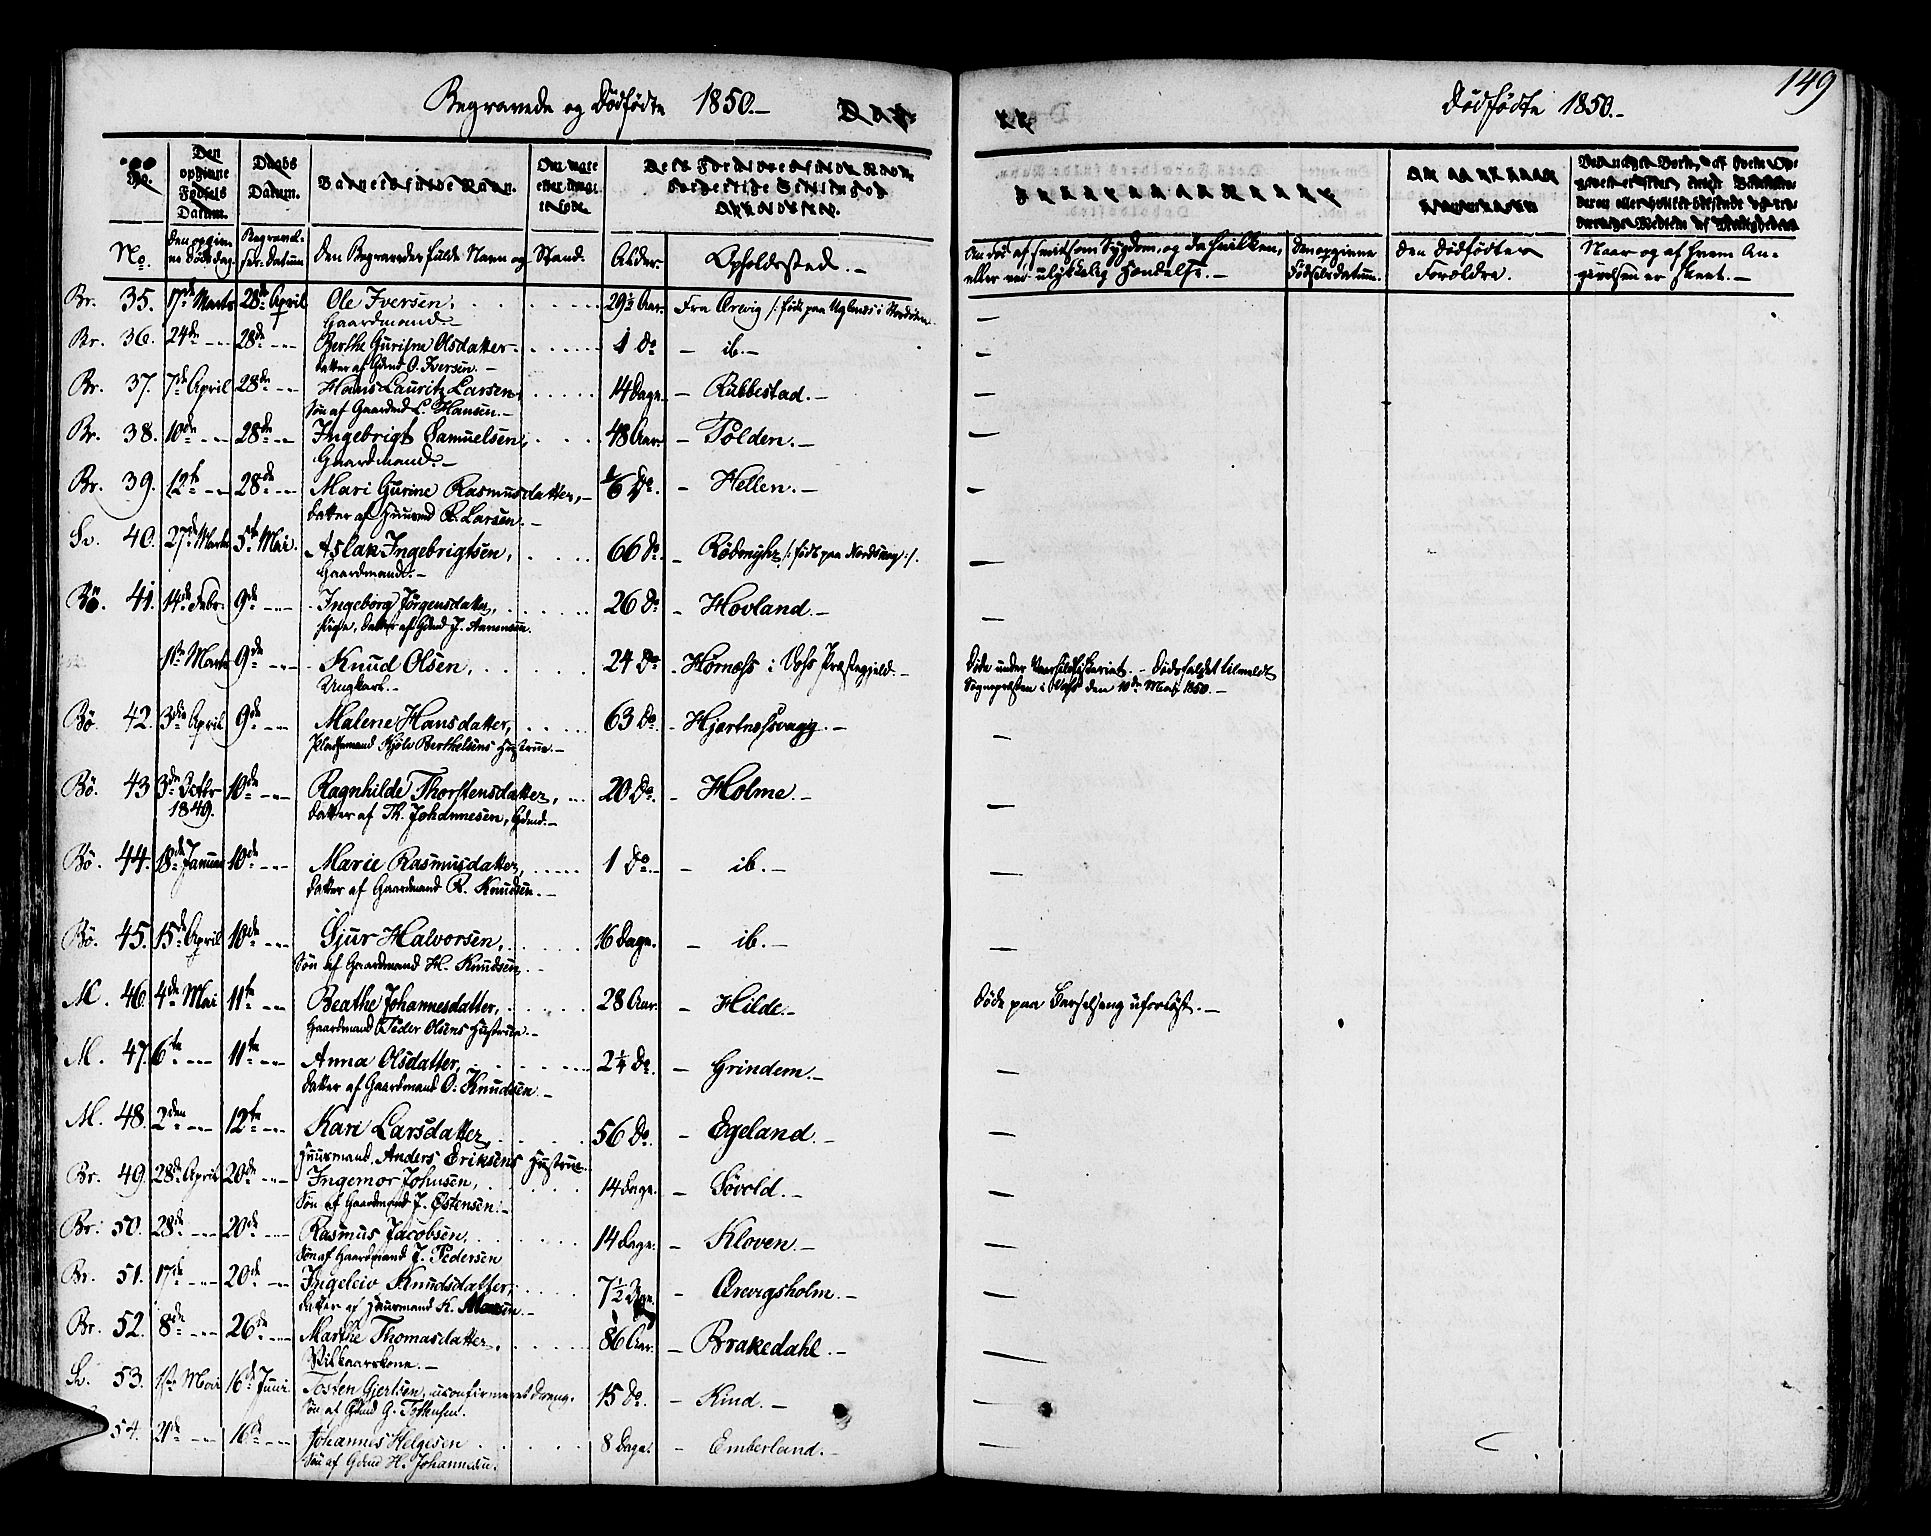 Begravede og Dødfødte 1850.-
Dødfødte 1850.-
149
No.
Den opgivne Fødsels Datum.
Daabs Datum.
Barnets fulde Navn.
No.
Den opgivne Dødsdag
Begravelses-Datum
Den Begravedes fulde Navn og Stand.
Alder.
Opholdssted.-
Om død af smitsom Sygdom, og da hvilken,
eller ved ulykkelig Hændelse.-
Den opgivne
Fødselsdatum.
Den Dødfødtes
Forældre.
Naar og af hvem An-
givelsen er skeet.-
Br. 35. 17de Marts 28de April Ole Iversen, 29½ Aar. Fra Ørevig /: født paa
Gaardmand.-
Br. 36. 24de -- 28de -- Berthe Gurine Olsdatter. 1 Do - ib.-
Datter af Gdmd O. Iversen.-
Br. 37. 7de April 28de -- Hans Lauritz Larsen, 14 Dage. - Rubbestad.-
Søn af Gaardmd L. Hansen.-
Br. 38. 10de -- 28de -- Ingebrigt Samuelsen, 48 Aar. - Tolden.-
Gaardmand.-
Br. 39. 12te -- 28de -- Mari Gurine Rasmusdatter,- 1/6 Do. - Hellen.-
Datter af Huusmd R. Larsen.-
Sv. 40. 27de Marts 5te Mai. Aslak Ingebrigtsen, 66 Do. - Rødmyhr /: født paa Nordskoug :/.
Gaardmand.-
Bø. 41. 14de Febr. 9de -- Ingeborg Jørgensdatter, 26 Do - Hovland.-
Pige, Datter af Gdmd J. Aanensen.
1ste Marts 9de -- Knud Olsen, 24 Do - Hornæss i Voss Præstegjeld.- Døde under - Dødsfaldet tilmeldt
Ungkarl.- Sognepresten i Voss den 10de Mai 1850.-
Bø. 42. 3die April 9de -- Malene Hansdatter, 63 Do. - Hjartnessvaag.-
Pladsemand Kjølv Berthelsens Hustrue.-
Bø. 43 3de Octbr 10de -- Ragnhilde Thorstensdatter, 20 Do. - Holme.-
1849. Datter af Th. Johannesen, Gdmd.-
Bø. 44. 18de Januar 10de -- Marie Rasmusdatter, 1 Do. - ib.-
Datter af Gaardmand R. Knudsen.-
Bø. 45. 15de April 10de -- Sjur Halvorsen, 16 Dage. - ib.-
Søn af Gaardmand H. Knudsen.-
M. 46 4de Mai 11te -- Beathe Johannesdatter, 28 Aar. - Hilde.- Døde paa Barselseng uforløst.-
Gaardmand Peder Olsens Hustrue.-
M. 47. 6te -- 11te -- Anna Olsdatter, 2¼ Do. - Grindem.-
Datter af Gaardmand O. Knudsen.-
M. 48. 2den -- 12te -- Kari Larsdatter, 56 Do. - Egeland.-
Huusmand Anders Eriksens Hustrue.
Br. 49. 28de April 20de -- Ingemor Johnsen, 14 Dage. - Søvold.-
Søn af Gaardmand J. Østensen.-
Br. 50. 28de -- 20de -- Rasmus Jacobsen, 14 Dage. - Kloven.-
Søn af Gaardmand J. Pedersen
Br. 51. 17de -- 20de -- Ingeleiv Knudsdatter, 7½ - Ørevigsholm.-
Datter af Huusmand K. Monsen.-
Br. 52. 8de -- 26de -- Marthe Thomasdatter, 86 Aar. - Brakedahl.-
Vilkaarskone.-
Sv. 53. 1ste Mai 16de Juni Tosten Gjertsen, uconfirmeret Dreng. 15 Do. - Kind.-
Søn af Gdmd G. Tostensen.
54. 21de -- 16de -- Johannes Helgesen 8 Dage. - Emberland.-
Søn af Gdmd H. Johannesen.